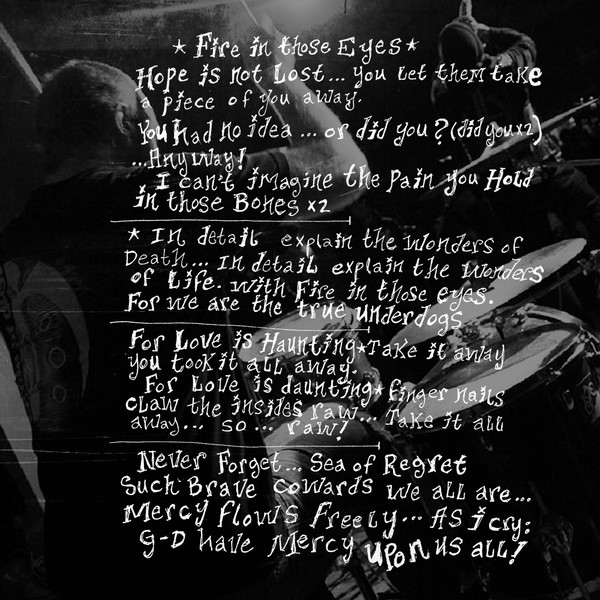 ★ Fire in those Eyes ★
Hope is not Lost... you let them take
a piece of you away.
You had no idea ... or did you? (did you x2)
...Anyway!
I can't imagine the pain you Hold
in those Bones x2
★ In detail explain the wonders of
Death... In detail explain the wonders
of Life. with Fire in those eyes.
For we are the true underdogs
For Love is Haunting ★ Take it away
you took it all away.
For Love is daunting ★ finger nails
claw the insides raw... Take it all
away... so... raw!
Never Forget... Sea of Regret
Such Brave cowards we all are...
Mercy flows Freely... As I cry:
G-D have Mercy upon us all!